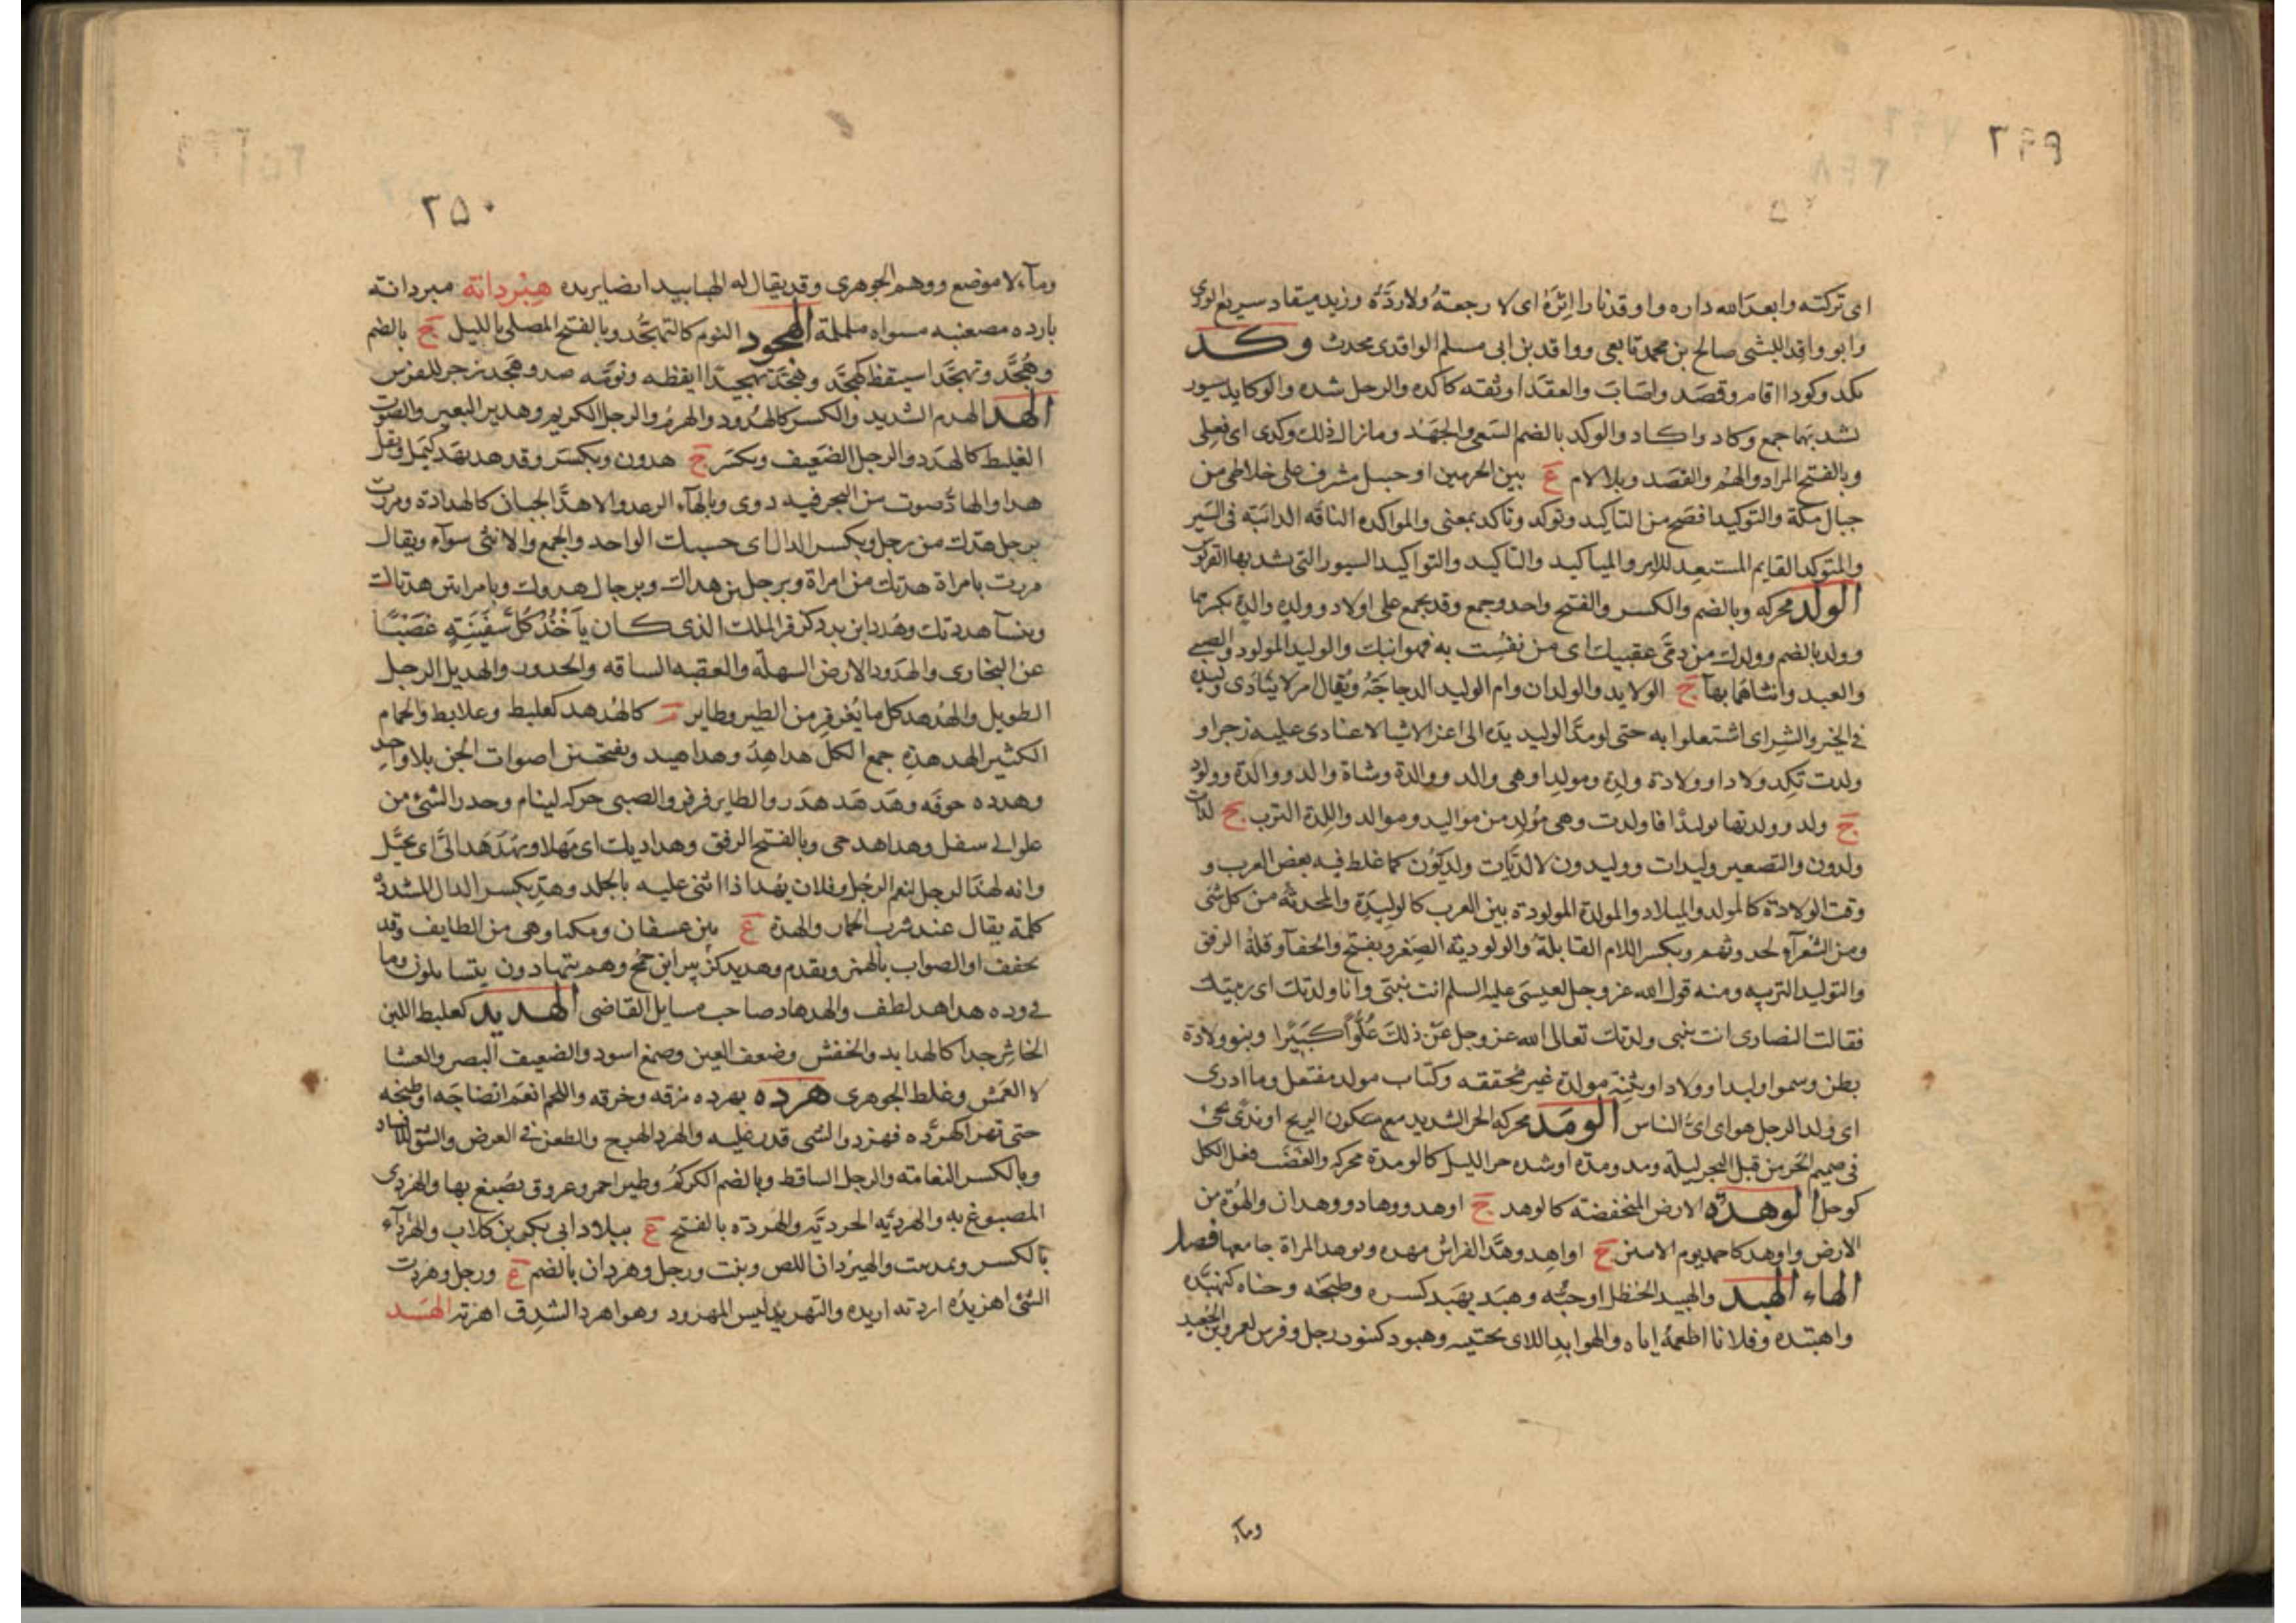 ٢٤٩
اى تركته وابعد الله داره واوقد نارا اثره اى لا رجعة ولا ردة وزيد ميقاد سريع الورى
وابو واقد الليثى صالح بن محمد تابعى وواقد بن ابى مسلم الواقدى محدث وكد
يكد وكودا اقام وقصد واصاب والعقد اوثقه كاكده والرجل شده والوكايد سيور
يشد بها جمع وكاد واكاد والوكد بالضم السعى والجهد ومازال ذلك وكدى اى فعلى
وبالفتح المراد والهم والقصد وبلا لام ع بين الحرمين او جبل مشرف على خلاطى من
جبال مكة والتوكيد افصح من التاكيد وتوكد وتاكد بمعنى والمواكده الناقه الدائبة فى السير
والمتوكد القايم المستعد للامر والمياكيد والتاكيد والتواكيد السيور التى يشد بها القربوس
الولد محركه وبالضم والكسر والفتح واحد وجمع وقد يجمع على اولاد وولده والدة بكسرهما
وولد بالضم وولدك من دمى عقبيك اى من نفست به فهو ابنك والوليد المولود والصبى
والعبد وانثاهما بهآ ج الولايد والولدان وام الوليد الدجاجة ويقال امر لا ينادى وليده
فى الخير والشر اى اشتغلوا به حتى لو مد الوليد يده الى اعز الاشيا لا ينادى عليه زجرا و
ولدت تلد ولادا وولادة ولدة ومولدا وهى والد ووالدة وشاة والد ووالدة وولود
ج ولد وولدتها توليدا فاولدت وهى مولد من مواليد وموالد واللدة الترب ج لدات
ولدون والتصغير وليدات ووليدون لا لديات ولديون كما غلط فيه بعض العرب و
وقت الولادة كالمولد والميلاد والمولدة المولودة بين العرب كالوليدة والمحدثة من كل شى
ومن الشعرآء لحدوثهم وبكسر اللام القابلة والولودية الصغر ويفتح والجفآ وقلة الرفق
والتوليد التربيه ومنه قول الله عز وجل لعيسى عليه السلم انت نبيى وانا ولدتك اى ربيتك
فقالت النصارى انت بنيى ولدتك تعالى الله عز وجل عن ذلك علوا كبيرا وبنو ولادة
بطن وسموا وليدا وولادا وبينة مولدة غير محققه وكتاب مولد مفتعل وما ادرى
اى ولد الرجل هو اى اى الناس الومد محركه الحر الشديد مع سكون الريح او ندى يجئ
فى صميم الحر من قبل البحر ليلة ومد ومدة او شده حر الليل كالومدة محركه والغضب فعل الكل
كوجل الوهده الارض المنخفضة كالوهد ج اوهد ووهاد ووهدان والهوة من
الارض واوهد كاحمد يوم الاثنين ج اواهد وهد الفراش مهده وتوهد المراة جامعها فصل
الهاء الهبد والهبيد الحنظل او حبه وهبد يهبد كسره وطبخه وجناه كتهبده
واهتبده وفلانا اطعمه اياه والهوابد اللاى يجتنيه وهبود كتنور رجل وفرس لعمرو بن الجعيد
ومآء
٣٥٠
ومآء لا موضع ووهم الجوهرى وقد يقال له الهبابيد ايضا ثريده هبردانة مبردانة
بارده مصعنبه مسواه ململة الهجود النوم كالتهجد وبالفتح المصلى بالليل ج بالضم
وهجد وتهجد استيقظ كهجد وهجد تهجيدا ايقظه ونومه ضد وهجد زجر للفرس
الهد الهدم الشديد والكسر كالهدود والهرم والرجل الكريم وهدير البعير والصوت
الغليط كالهدد والرجل الضعيف ويكسر ج هدون ويكسر وقد هد يهد كيمل ويقل
هدا والهاد صوت من البحر فيه دوى وبالهآء الرعد والاهد الجبان كالهدادة ومررت
برجل هدك من رجل وبكسر الدال اى حسبك الواحد والجمع والانثى سوآء ويقال
مررت بامراة هدتك من امراة وبرجلين هداك وبرجال هدوك وبامراتين هدتاك
وبنسآ هددنك وهدد ابن بدد كزفر الملك الذى كان يأخذ كل سفينة غصبا
عن البخارى والهدود الارض السهلة والعقبه الشاقه والحدور والهديد الرجل
الطويل والهدهد كل ما يقرقر من الطير وطاير م كالهدهد كعلبط وعلابط والحمام
الكثير الهدهدة جمع الكل هداهد وهداهيد وبفتحتين اصوات الجن بلا واحد
وهدده خوفه وهدهد هدر والطاير قرقر والصبى حركه لينام وحدر الشئ من
علو الى سفل وهداهد حى وبالفتح الرفق وهداديك اى مهلا ويتهدهد الى اى يخيل
وانه لهد الرجل لنعم الرجل وفلان يهد اذا اثنى عليه بالجلد وهد بكسر الدال المشددة
كلمة يقال عند شرب الحمار والهدة ع بين عسفان ومكه او هى من الطايف وقد
يخفف او الصواب بالهمز ويقدم وهديد كزبير ابن جمح وهم يتهادون يتسايلون وما
فى وده هداهد لطف والهدهاد صاحب مسايل القاضى الهدبد كعلبط اللبن
الخاثر جدا كالهدابد والخفش وضعف العين وصمغ اسود والضعيف البصر والعشا
لا العمش وغلط الجوهرى هرده يهرده مزقه وخرقه واللحم انعم انضاجه او طبخه
حتى تهرا كهرده فهرد والشى قدر عليه والهرد الهرج والطعن فى العرض والشق للافساد
وبالكسر النعامه والرجل الساقط وبالضم الكركم وطين احمر وعروق يصبغ بها والهردى
المصبوغ به والهرديه الحرديه والهردة بالفتح ع ببلاد ابى بكر بن كلاب والهردآء
بالكسر ويمد نبت والهيردان اللص ونبت ورجل وهردان بالضم ع ورجل وهردت
الشئ اهريده اردته اريده والتهريد لبس المهرود وهو اهرد الشدق اهرته الهسد